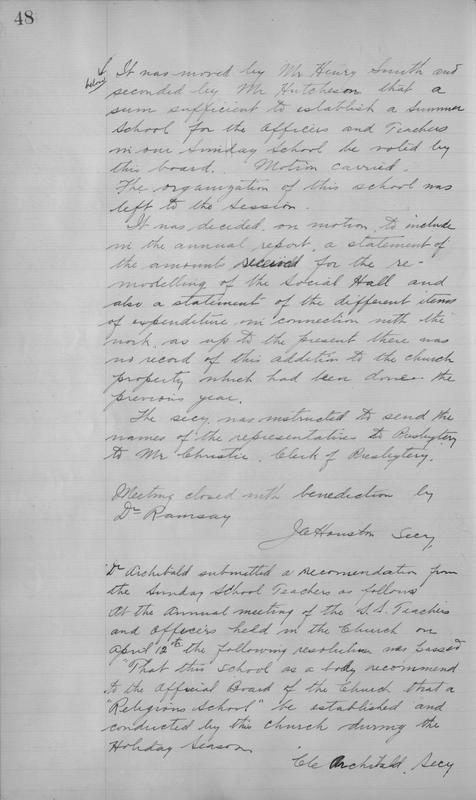 48
below
It was moved by Mr Henry Smith and
seconded by Mr Hutcheson that a
sum sufficient to establish a Summer
School for the Officers and Teachers
in our Sunday School be voted by
this board. Motion carried.
The organization of this school was
left to the Session.
It was decided, on motion, to include
in the annual report, a statement of
the amount received for the re-
modelling of the Social Hall and
also a statement of the different items
of expenditure in connection with the
work, as up to the present there was
no record of this addition to the church
property which had been done the
previous year.
The secy. was instructed to send the
names of the representatives to Presbytery
to Mr Christie, Clerk of Presbytery.
Meeting closed with benediction by
Dr Ramsay
JA Houston Secy,
Dr Archibald submitted a Recomendation from
the Sunday School Teachers as follows
At the Annual meeting of the S.S. Teachers
and Officers held in the Church on
April 12th the following resolution was Passed
"That this School as a body recommend
to the Official Board of the Church that a
"Religious School" be established and
conducted by this church during the
Holiday Season
Archibald, Secy